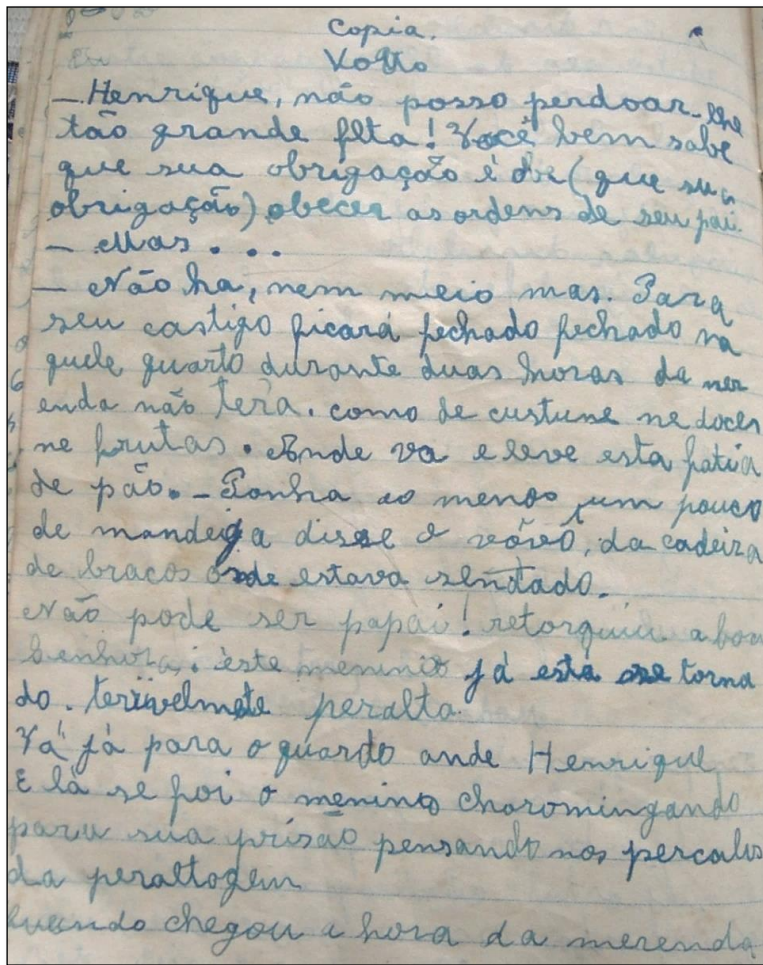 Copia.
Vovô
— Henrique, não posso perdoar-lhe
tão grande flta! Você bem sabe
que sua obrigação é de (que sua
obrigação) obecer as ordens de seu pai.
— Mas...
— Não ha, nem meio mas. Para
seu castigo ficará fechado fechado na
quele quarto durante duas horas da mer
enda não terá. como de custune ne doces
ne frutas. Ande va e leve esta fatia
de pão. — Ponha ao menos um pouco
de mandeiga disse o vôvô, da cadeira
de bracos onde estava sentado.
Não pode ser papai! retorquiu a boa
senhora; este menino já esta se torna
do. terrivelmete peralta.
Vá já para o quardo ande Henrique
E lá se foi o menino choromingando
para sua prisão pensando nos percalus
da peraltagem
Quando chegou a hora da merenda